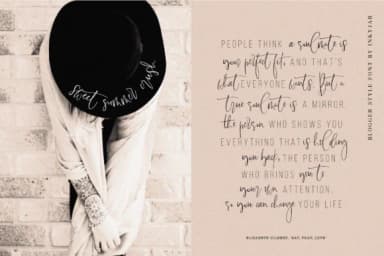 sweet summer rush
PEOPLE THINK a soulmate is
your perfect fit, AND THAT'S
what EVERYONE wants. But a
true soulmate is A MIRROR,
the person WHO SHOWS YOU
EVERYTHING THAT is holding
you back, THE PERSON
WHO BRINGS you to
your own ATTENTION,
so you can change YOUR LIFE
ELIZABETH GILBERT, EAT, PRAY, LOVE
BLOGGER STYLE FONT BY INKYJAR